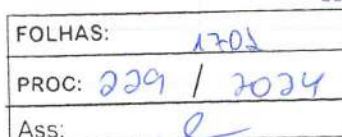 FOLHAS: 1701
PROC: 229 / 2024
Ass: